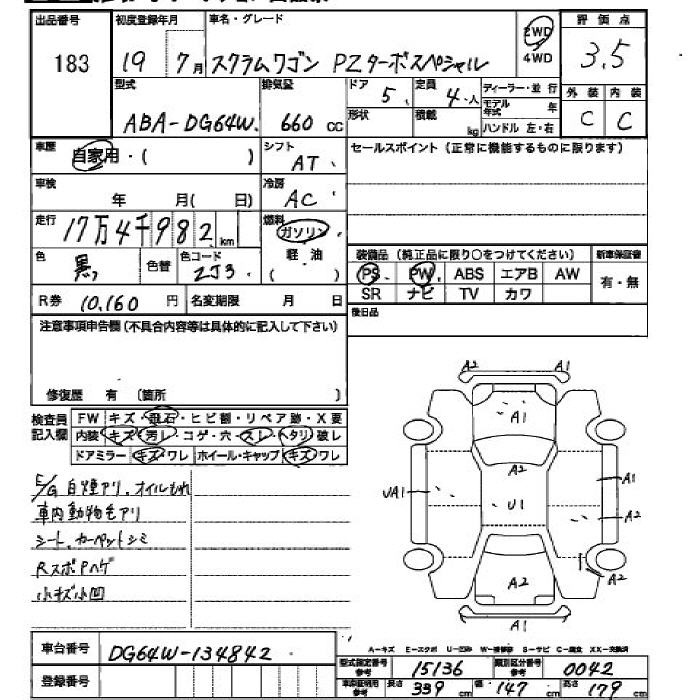 出品番号 初度登録年月 車名・グレード 評価点
183 19 7月 スクラムワゴン PZターボスペシャル 2WD 4WD 3.5
型式 排気量 ドア 定員 ディーラー・並行 外装 内装
ABA-DG64W 660 cc 5 4人 モデル年式 年 C C
形状 積載 kg ハンドル 左・右
車歴 自家用・( ) シフト AT セールスポイント (正常に機能するものに限ります)
車検 年 月( 日) 冷房 AC
走行 17万4千982km 燃料 ガソリン
色 黒 色替 色コード ZJ3 軽・油 ( )
装備品 (純正品に限り○をつけてください) 新車保証書
PS PW ABS エアB AW 有・無
R券 10,160 円 名変期限 月 日 SR ナビ TV カワ
注意事項申告欄 (不具合内容等は具体的に記入して下さい) 後日品
修復歴 有 (箇所 )
検査員記入欄 FW キズ・飛石・ヒビ割・リペア跡・X要
内装 キズ・汚レ・コゲ・穴・スレ・ヘタリ・破レ
ドアミラー キズ・ワレ ホイール・キャップ キズ・ワレ
E/G白煙アリ、オイルもれ
車内動物毛アリ
シート、カーペットシミ
RスポPハゲ
小キズ小凹
A2 A1
A1
A2
A1
UA1 U1
A2
A2
A2
A1
A-キズ E-エクボ U-凹み W-補修跡 S-サビ C-腐食 XX-交換済
車台番号 DG64W-134842
型式指定番号 参考 15136 類別区分番号 参考 0042
登録番号 車庫証明用 参考 長さ 339 cm 幅 147 cm 高さ 179 cm